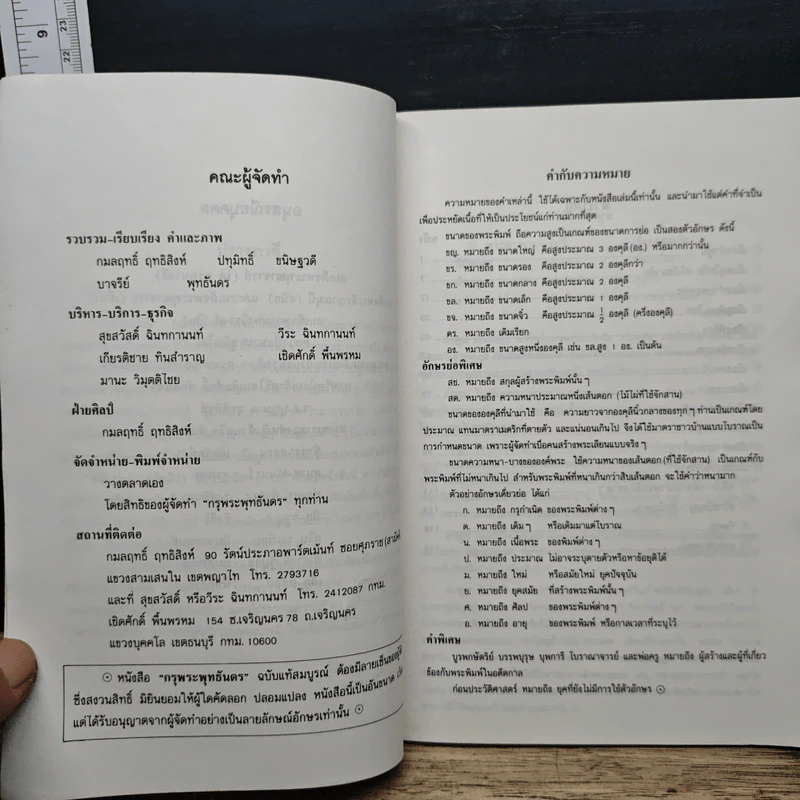 9
23
22
คณะผู้จัดทำ
รวบรวม-เรียบเรียง คำและภาพ
กมลฤทธิ์ ฤทธิสิงห์ ปทุมิทธิ์ ขนิษฐวดี
บาจรีย์ พุทธันดร
บริหาร-บริการ-ธุรกิจ
สุขสวัสดิ์ ฉินทกานนท์ วีระ ฉินทกานนท์
เกียรติชาย ทินสำราญ เชิดศักดิ์ พื้นพรหม
มานะ วิมุตติไชย
ฝ่ายศิลป์
กมลฤทธิ์ ฤทธิสิงห์
จัดจำหน่าย-พิมพ์จำหน่าย
วางตลาดเอง
โดยสิทธิของผู้จัดทำ “กรุพระพุทธันดร” ทุกท่าน
สถานที่ติดต่อ
กมลฤทธิ์ ฤทธิสิงห์ 90 รัตน์ประภาอพาร์ตเม้นท์ ซอยศุภราช
แขวงสามเสนใน เขตพญาไท โทร. 2793716
และที่ สุขสวัสดิ์ หรือวีระ ฉินทกานนท์ โทร. 2412087 กทม.
เชิดศักดิ์ พื้นพรหม 154 ซ.เจริญนคร 78 ถ.เจริญนคร
แขวงบุคคโล เขตธนบุรี กทม. 10600
⊙ หนังสือ “กรุพระพุทธันดร” ฉบับแท้สมบูรณ์ ต้องมีลายเซ็น
ซึ่งสงวนสิทธิ์ มิยินยอมให้ผู้ใดคัดลอก ปลอมแปลง หนังสือนี้เป็นอันขาด
แต่ได้รับอนุญาตจากผู้จัดทำอย่างเป็นลายลักษณ์อักษรเท่านั้น ⊙
คำกับความหมาย
ความหมายของคำเหล่านี้ ใช้ได้เฉพาะกับหนังสือเล่มนี้เท่านั้น และนำมาใช้แต่คำที่จำเป็น
เพื่อประหยัดเนื้อที่ให้เป็นประโยชน์แก่ท่านมากที่สุด
ขนาดของพระพิมพ์ ถือความสูงเป็นเกณฑ์ของขนาดการย่อ เป็นสองตัวอักษร ดังนี้
ขญ. หมายถึง ขนาดใหญ่ คือสูงประมาณ 3 องคุลี (อง.) หรือมากกว่านั้น
ขร. หมายถึง ขนาดรอง คือสูงประมาณ 2 องคุลีกว่า
ขก. หมายถึง ขนาดกลาง คือสูงประมาณ 2 องคุลี
ขล. หมายถึง ขนาดเล็ก คือสูงประมาณ 1 องคุลี
ขจ. หมายถึง ขนาดจิ๋ว คือสูงประมาณ ½ องคุลี (ครึ่งองคุลี)
ดร. หมายถึง เดิมเรียก
อง. หมายถึง ขนาดสูงหนึ่งองคุลี เช่น ขล.สูง 1 อง. เป็นต้น
อักษรย่อพิเศษ
สช. หมายถึง สกุลผู้สร้างพระพิมพ์นั้น ๆ
สต. หมายถึง ความหนาประมาณหนึ่งเส้นตอก (ไม้ไผ่ที่ใช้จักสาน)
ขนาดขององคุลีที่นำมาใช้ คือ ความยาวจากองคุลีนิ้วกลางของทุก ๆ ท่านเป็นเกณฑ์โดย
ประมาณ แทนมาตราเมตริกที่ตายตัว และแน่นอนเกินไป จึงได้ใช้มาตราชาวบ้านแบบโบราณเป็น
การกำหนดขนาด เพราะผู้จัดทำเบื่อคนสร้างพระเลียนแบบจริง ๆ
ขนาดความหนา-บางขององค์พระ ใช้ความหนาของเส้นตอก (ที่ใช้จักสาน) เป็นเกณฑ์กับ
พระพิมพ์ที่ไม่หนาเกินไป สำหรับพระพิมพ์ที่หนาเกินกว่าสิบเส้นตอก จะใช้คำว่าหนามาก
ตัวอย่างอักษรเดี่ยวย่อ ได้แก่
ก. หมายถึง กรุกำเนิด ของพระพิมพ์ต่าง ๆ
ด. หมายถึง เดิม ๆ หรือเดิมมาแต่โบราณ
น. หมายถึง เนื้อพระ ของพิมพ์ต่าง ๆ
ป. หมายถึง ประมาณ ไม่อาจระบุตายตัวหรือหาข้อยุติได้
ม. หมายถึง ใหม่ หรือสมัยใหม่ ยุคปัจจุบัน
ย. หมายถึง ยุคสมัย ที่สร้างพระพิมพ์นั้น ๆ
ศ. หมายถึง ศิลป ของพระพิมพ์ต่าง ๆ
อ. หมายถึง อายุ ของพระพิมพ์ หรือกาลเวลาที่ระบุไว้
คำพิเศษ
บูรพกษัตริย์ บรรพบุรุษ บุพการี โบราณาจารย์ และพ่อครู หมายถึง ผู้สร้างและผู้ที่เกี่ยว
ข้องกับพระพิมพ์ในอดีตกาล
ก่อนประวัติศาสตร์ หมายถึง ยุคที่ยังไม่มีการใช้ตัวอักษร ⊙